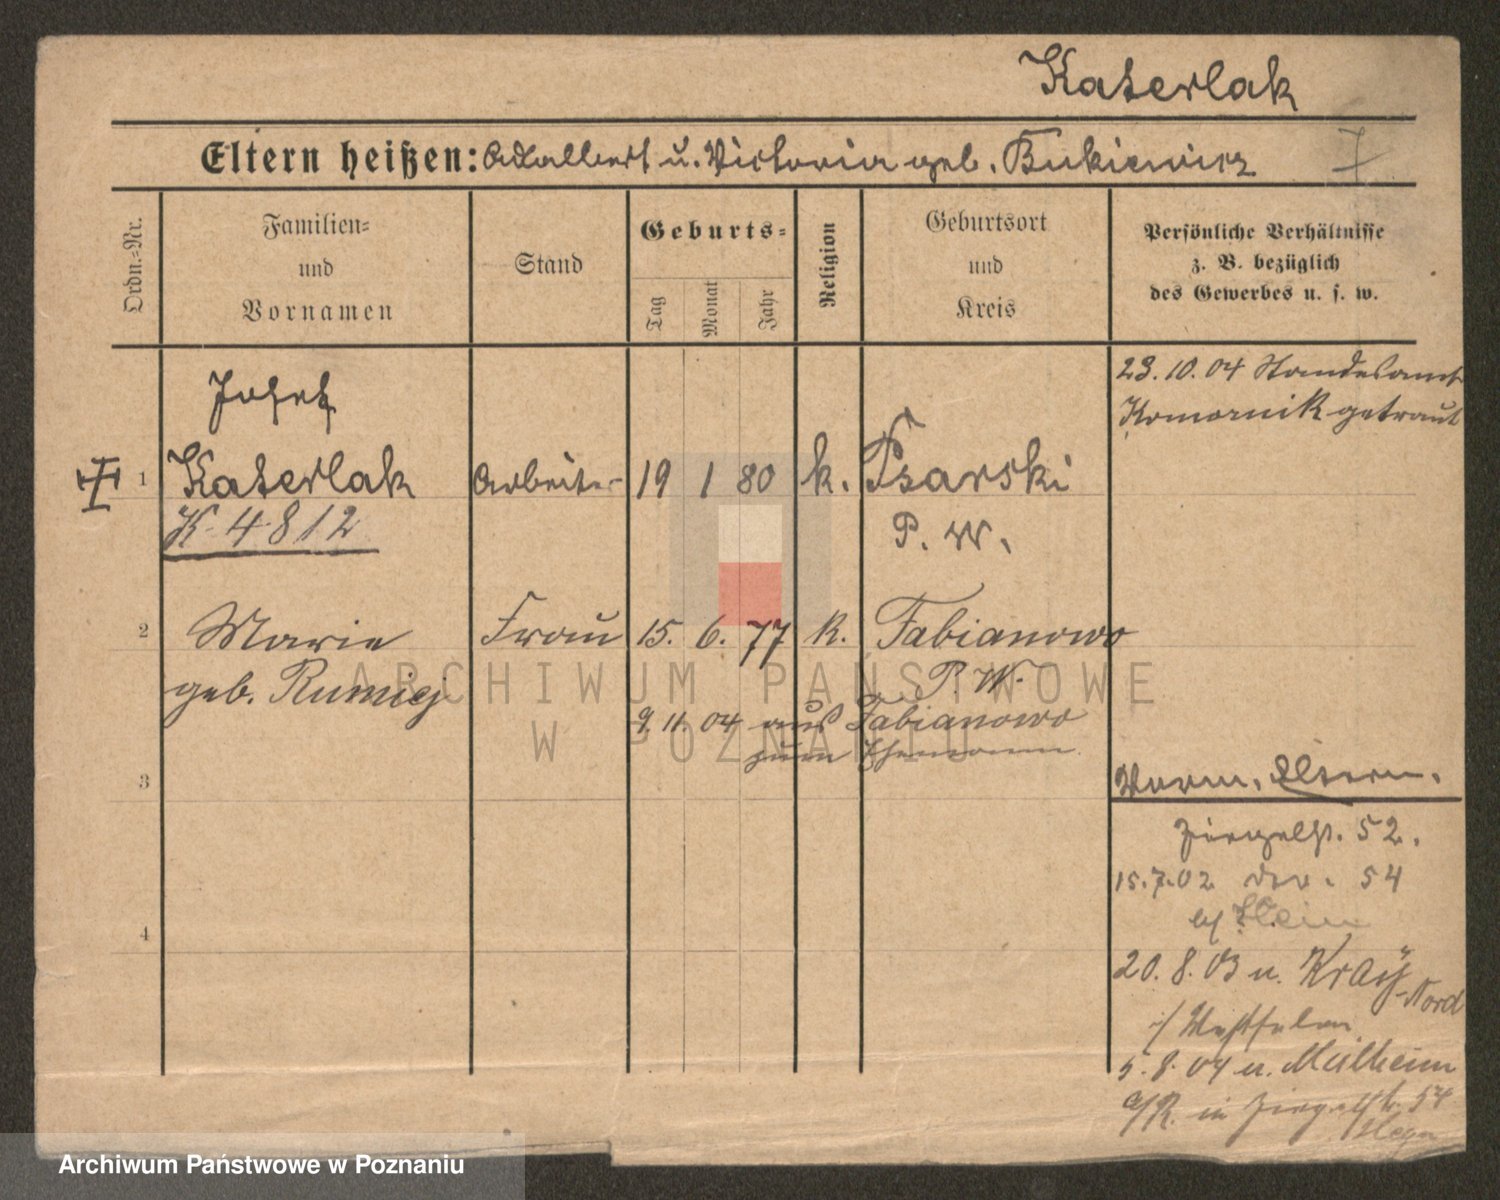 Katerlak
Eltern heißen: Adalbert u. Victoria geb. Bukiewicz
7
Ordn.-Nr.
Familien-
und
Vornamen
Stand
Geburts-
Tag
Monat
Jahr
Religion
Geburtsort
und
Kreis
Persönliche Verhältnisse
z. B. bezüglich
des Gewerbes u. s. w.
23.10.04 Standesamt
Komornik getraut
Josef
1 Katerlak Arbeiter 19 1 80 k. Psarski
K 4812
P. W.
2 Marie Frau 15. 6. 77 k. Fabianowo
geb. Rumiej
P. W.
9.11.04 aus Fabianowo
zum Ehemann.
3
Vorm. Eltern.
Ziegelstr. 52.
15.7.02 54
b/ Klein
4
20.8.03 n. Kray-Nord
i/ Westfalen
5.8.04 n. Mülheim
a/R. in Ziegelstr. 54
ARCHIWUM PAŃSTWOWE
W POZNANIU
Archiwum Państwowe w Poznaniu